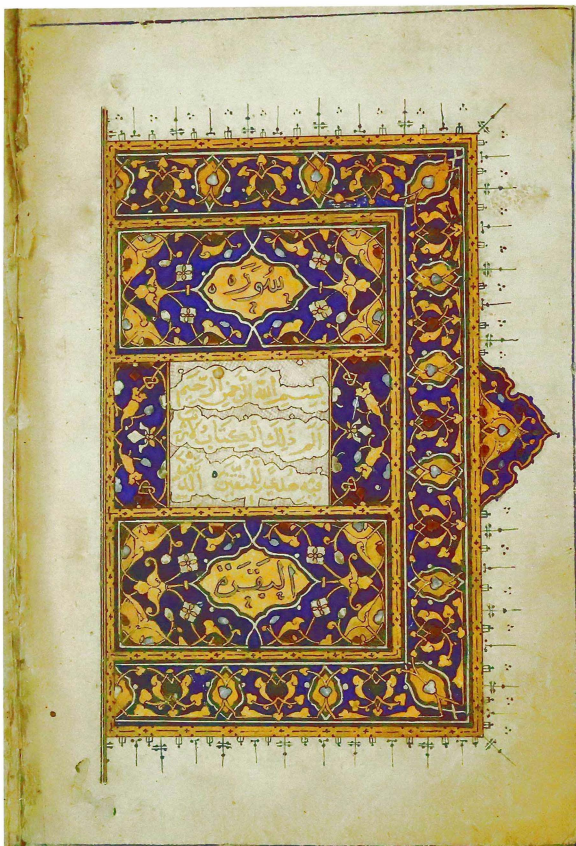 سورة
بسم الله الرحمن الرحيم
الم ذلك الكتاب لا
فيه هدى للمتقين الذ
البقرة